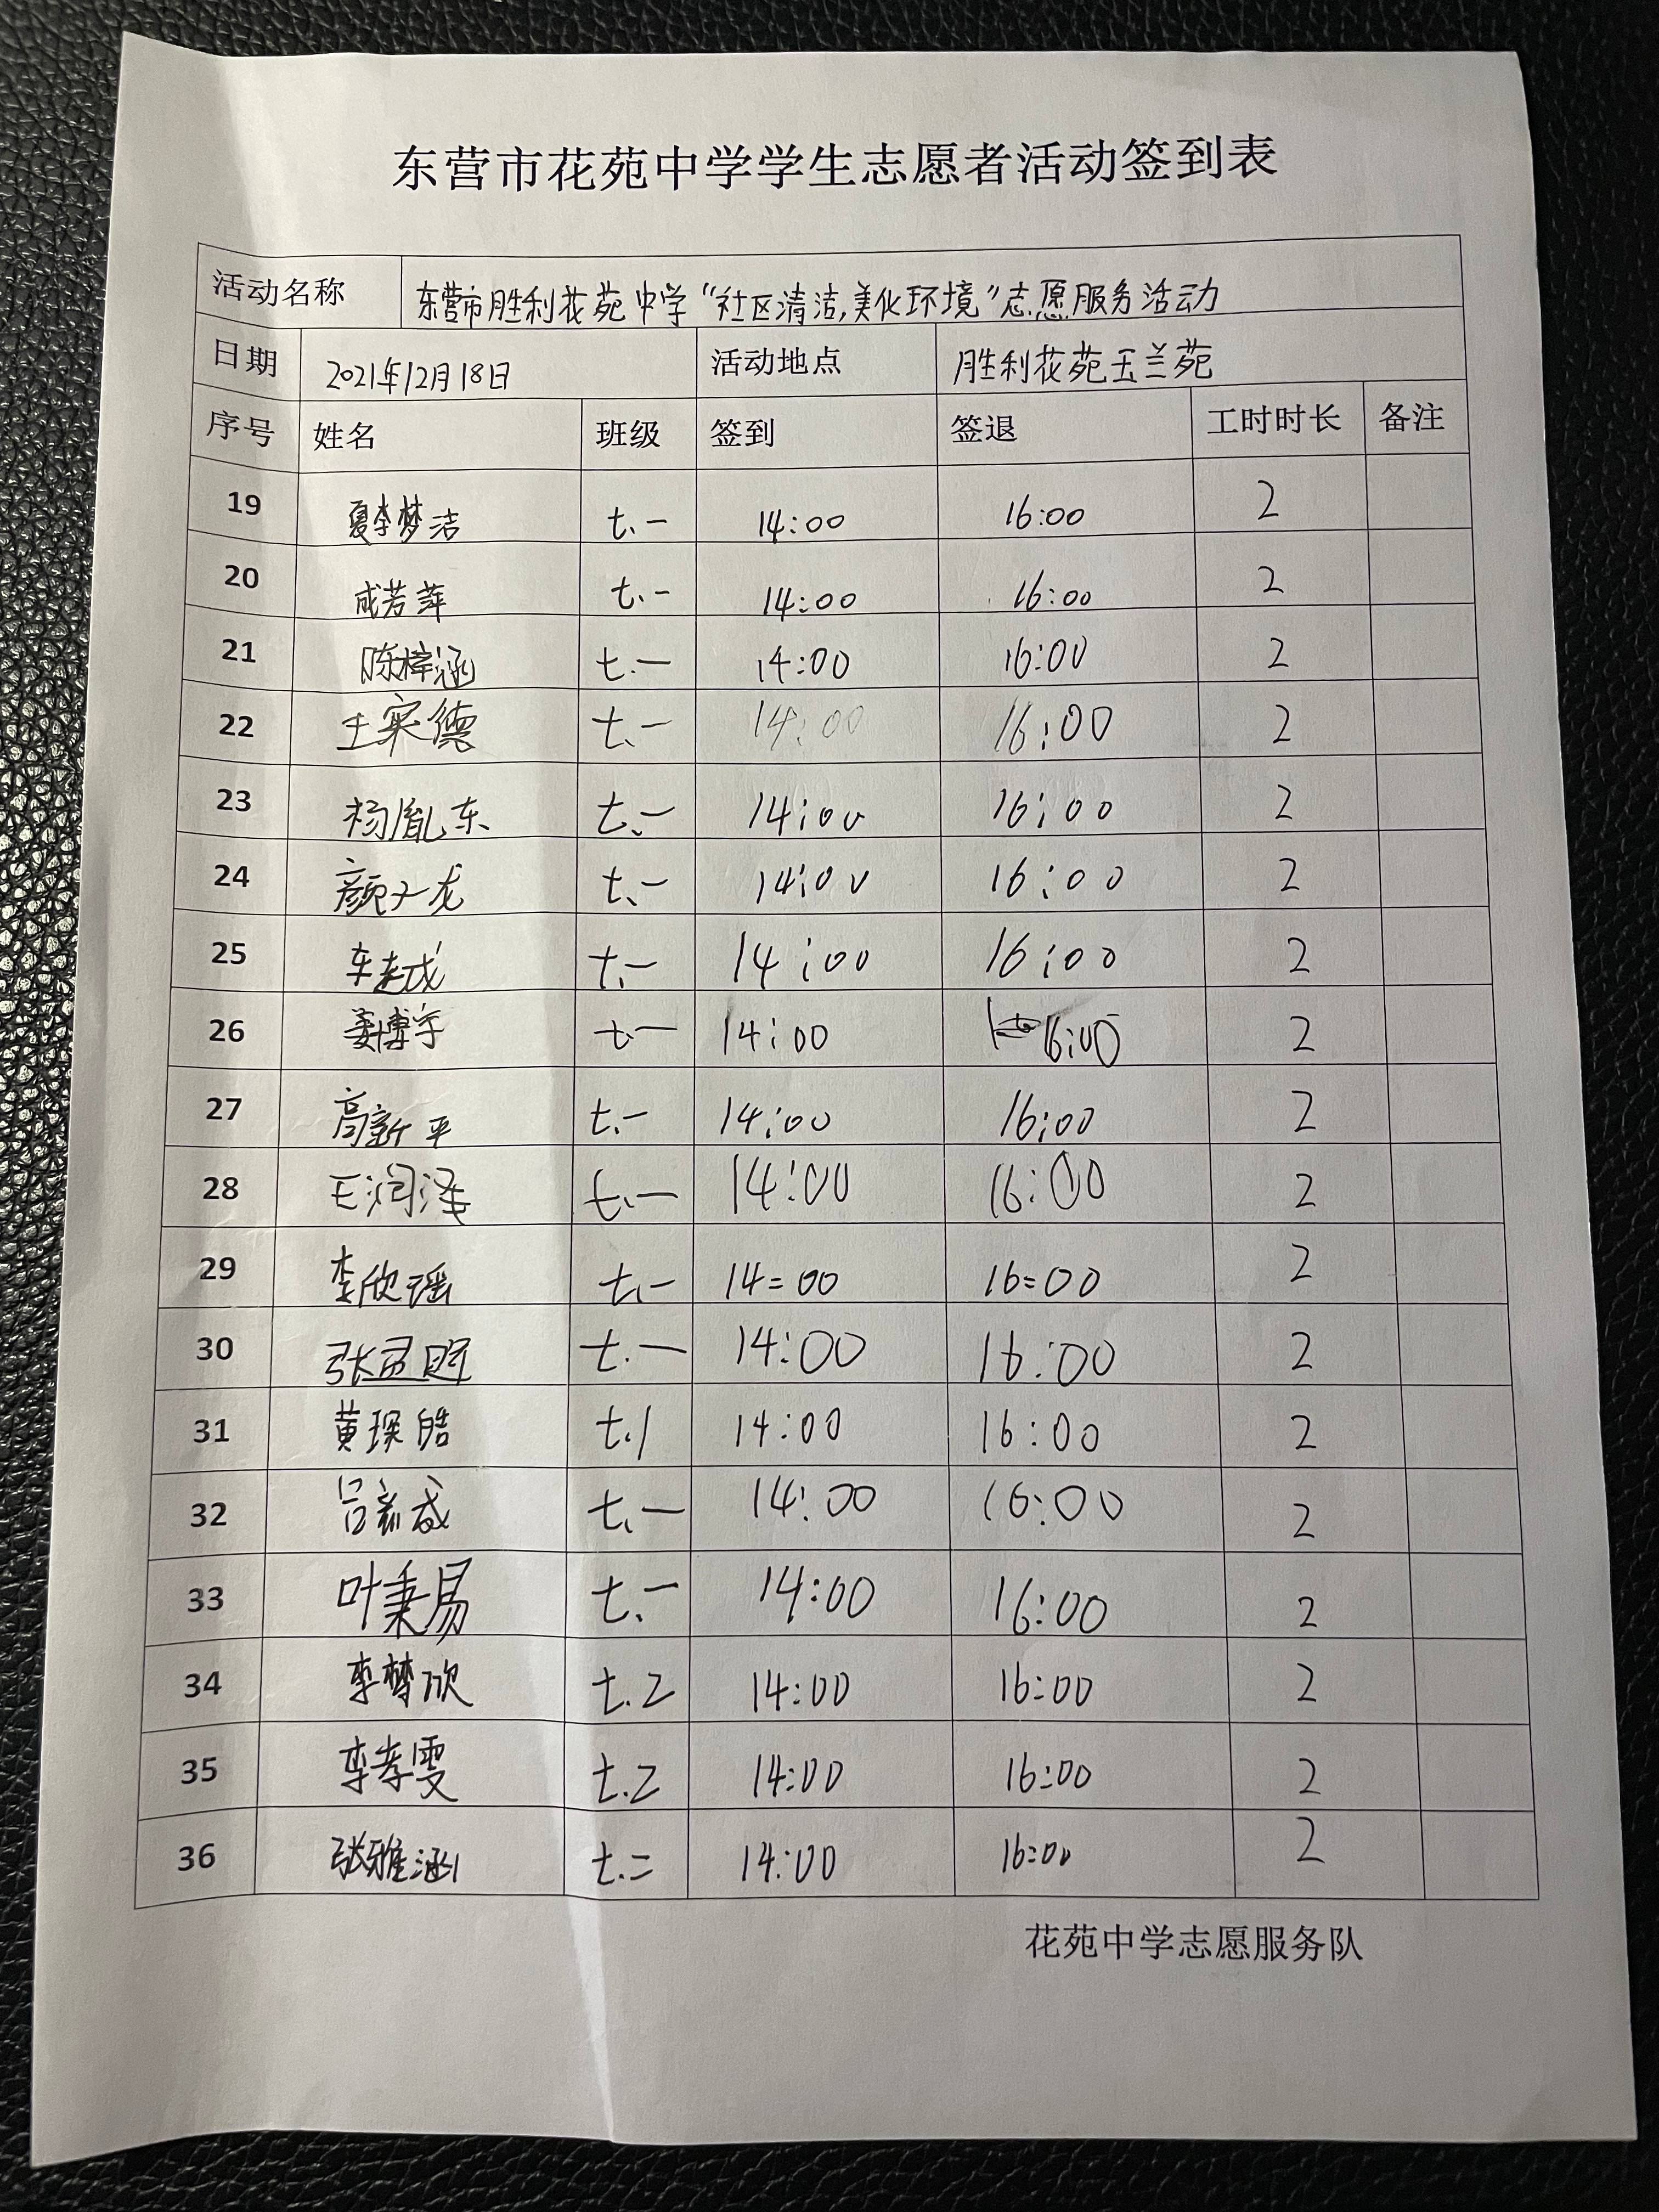 东营市花苑中学学生志愿者活动签到表
活动名称 东营市胜利花苑中学“社区清洁,美化环境”志愿服务活动
日期 2021年12月18日 活动地点 胜利花苑玉兰苑
序号 姓名 班级 签到 签退 工时时长 备注
19 夏李梦洁 七.一 14:00 16:00 2
20 成芳萍 七.一 14:00 16:00 2
21 陈梓涵 七.一 14:00 16:00 2
22 王案德 七.一 14:00 16:00 2
23 杨胤东 七.一 14:00 16:00 2
24 颜子龙 七.一 14:00 16:00 2
25 车建成 七.一 14:00 16:00 2
26 姜博宇 七.一 14:00 16:00 2
27 高新平 七.一 14:00 16:00 2
28 王润泽 七.一 14:00 16:00 2
29 李欣瑶 七.一 14=00 16=00 2
30 张 七.一 14:00 16:00 2
31 黄琛皓 七.1 14:00 16:00 2
32 吕 七.一 14:00 16:00 2
33 叶秉易 七.一 14:00 16:00 2
34 李梦欣 七.2 14:00 16:00 2
35 李孝雯 七.2 14:00 16:00 2
36 张雅涵 七.二 14:00 16:00 2
花苑中学志愿服务队